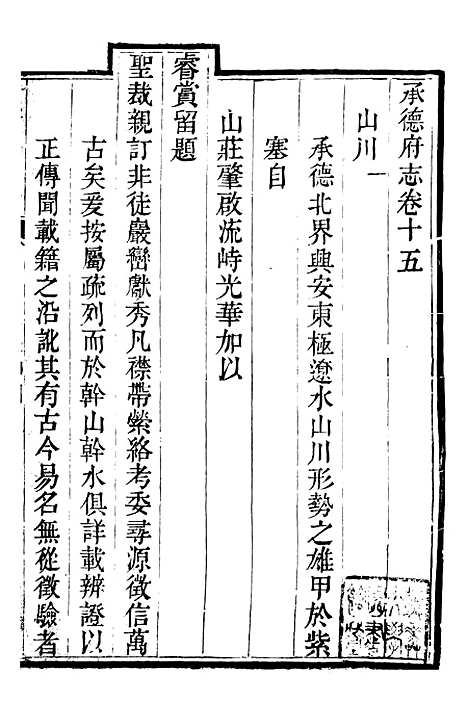 承德府志卷十五
山川一
承德北界興安東極遼水山川形勢之雄甲於紫
塞自
山莊肇啟流峙光華加以
睿賞留題
聖裁親訂非徒巖巒獻秀凡襟帶縈絡考委尋源徵信萬
古矣爰按屬疏列而於幹山幹水俱詳載辨證以
正傳聞載籍之沿訛其有古今易名無從徵驗者